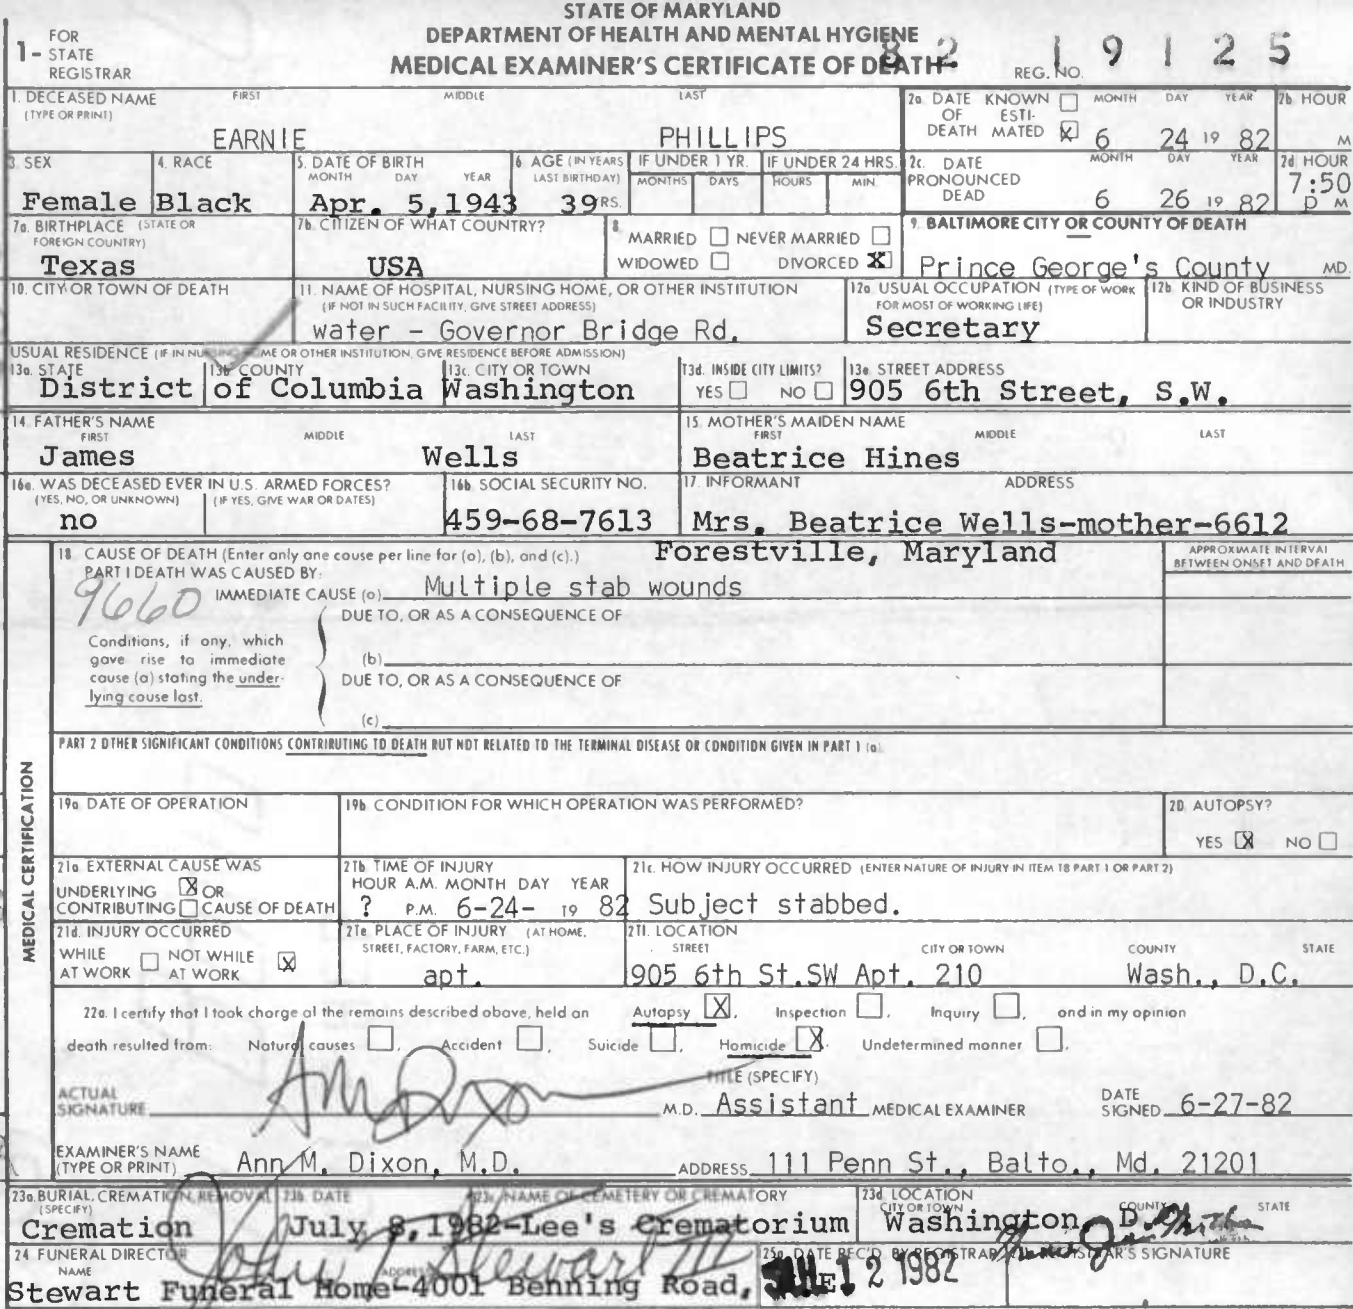 STATE OF MARYLAND
DEPARTMENT OF HEALTH AND MENTAL HYGIENE
MEDICAL EXAMINER'S CERTIFICATE OF DEATH
1- FOR STATE REGISTRAR
REG. NO. 82 19125
1. DECEASED NAME (TYPE OR PRINT) FIRST MIDDLE LAST
EARNIE PHILLIPS
2a. DATE OF DEATH KNOWN ☐ ESTIMATED ☒ MONTH DAY YEAR 6 24 19 82
2b. HOUR M
3. SEX Female
4. RACE Black
5. DATE OF BIRTH MONTH DAY YEAR Apr. 5,1943
6. AGE (IN YEARS LAST BIRTHDAY) 39 RS.
IF UNDER 1 YR. MONTHS DAYS
IF UNDER 24 HRS. HOURS MIN.
2c. DATE PRONOUNCED DEAD MONTH DAY YEAR 6 26 19 82
2d. HOUR 7:50 p M
7a. BIRTHPLACE (STATE OR FOREIGN COUNTRY) Texas
7b. CITIZEN OF WHAT COUNTRY? USA
8. MARRIED ☐ NEVER MARRIED ☐
WIDOWED ☐ DIVORCED ☒
9. BALTIMORE CITY OR COUNTY OF DEATH
Prince George's County MD.
10. CITY OR TOWN OF DEATH
11. NAME OF HOSPITAL, NURSING HOME, OR OTHER INSTITUTION
(IF NOT IN SUCH FACILITY, GIVE STREET ADDRESS)
water - Governor Bridge Rd.
12a. USUAL OCCUPATION (TYPE OF WORK FOR MOST OF WORKING LIFE)
Secretary
12b. KIND OF BUSINESS OR INDUSTRY
USUAL RESIDENCE (IF IN NURSING HOME OR OTHER INSTITUTION, GIVE RESIDENCE BEFORE ADMISSION)
13a. STATE 13b. COUNTY 13c. CITY OR TOWN 13d. INSIDE CITY LIMITS? 13e. STREET ADDRESS
District of Columbia Washington YES ☐ NO ☐ 905 6th Street, S.W.
14. FATHER'S NAME FIRST MIDDLE LAST
James Wells
15. MOTHER'S MAIDEN NAME FIRST MIDDLE LAST
Beatrice Hines
16a. WAS DECEASED EVER IN U.S. ARMED FORCES?
(YES, NO, OR UNKNOWN) (IF YES, GIVE WAR OR DATES)
no
16b. SOCIAL SECURITY NO.
459-68-7613
17. INFORMANT ADDRESS
Mrs. Beatrice Wells-mother-6612
Forestville, Maryland
18. CAUSE OF DEATH (Enter only one cause per line for (a), (b), and (c).)
PART I DEATH WAS CAUSED BY:
9660
IMMEDIATE CAUSE (a) Multiple stab wounds
APPROXIMATE INTERVAL BETWEEN ONSET AND DEATH
DUE TO, OR AS A CONSEQUENCE OF
Conditions, if any, which gave rise to immediate cause (a) stating the underlying cause last.
(b)
DUE TO, OR AS A CONSEQUENCE OF
(c)
PART 2 OTHER SIGNIFICANT CONDITIONS CONTRIBUTING TO DEATH BUT NOT RELATED TO THE TERMINAL DISEASE OR CONDITION GIVEN IN PART 1 (a)
MEDICAL CERTIFICATION
19a. DATE OF OPERATION
19b. CONDITION FOR WHICH OPERATION WAS PERFORMED?
20. AUTOPSY?
YES ☒ NO ☐
21a. EXTERNAL CAUSE WAS
UNDERLYING ☒ OR
CONTRIBUTING ☐ CAUSE OF DEATH
21b. TIME OF INJURY
HOUR A.M. MONTH DAY YEAR
? P.M. 6-24- 19 82
21c. HOW INJURY OCCURRED (ENTER NATURE OF INJURY IN ITEM 18 PART 1 OR PART 2)
Subject stabbed.
21d. INJURY OCCURRED
WHILE AT WORK ☐ NOT WHILE AT WORK ☒
21e. PLACE OF INJURY (AT HOME, STREET, FACTORY, FARM, ETC.)
apt.
21f. LOCATION
STREET CITY OR TOWN COUNTY STATE
905 6th St.SW Apt. 210 Wash., D.C.
22a. I certify that I took charge of the remains described above, held an Autopsy ☒, Inspection ☐, Inquiry ☐, and in my opinion
death resulted from: Natural causes ☐, Accident ☐, Suicide ☐, Homicide ☒. Undetermined manner ☐.
ACTUAL SIGNATURE Ann M Dixon M.D.
TITLE (SPECIFY) Assistant MEDICAL EXAMINER
DATE SIGNED 6-27-82
EXAMINER'S NAME (TYPE OR PRINT) Ann M. Dixon, M.D.
ADDRESS 111 Penn St., Balto., Md. 21201
23a. BURIAL, CREMATION, REMOVAL (SPECIFY) 23b. DATE 23c. NAME OF CEMETERY OR CREMATORY 23d. LOCATION CITY OR TOWN COUNTY STATE
Cremation July 8,1982-Lee's Crematorium Washington, D.
24. FUNERAL DIRECTOR
NAME ADDRESS
Stewart Funeral Home-4001 Benning Road,
John Stewart III
25a. DATE REC'D. BY REGISTRAR
12 1982
REGISTRAR'S SIGNATURE